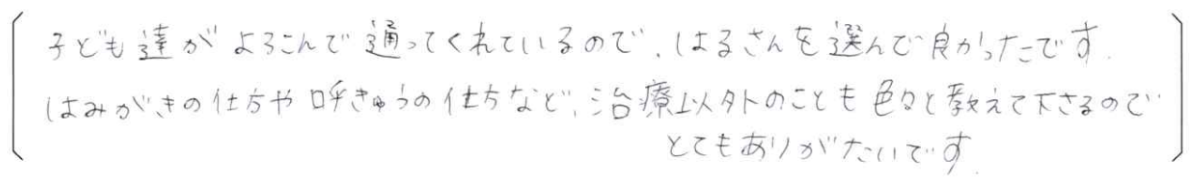 子ども達がよろこんで通ってくれているので、はるさんを選んで良かったです.
はみがきの仕方や呼きゅうの仕方など、治療以外のことも色々と教えて下さるので
とてもありがたいです.